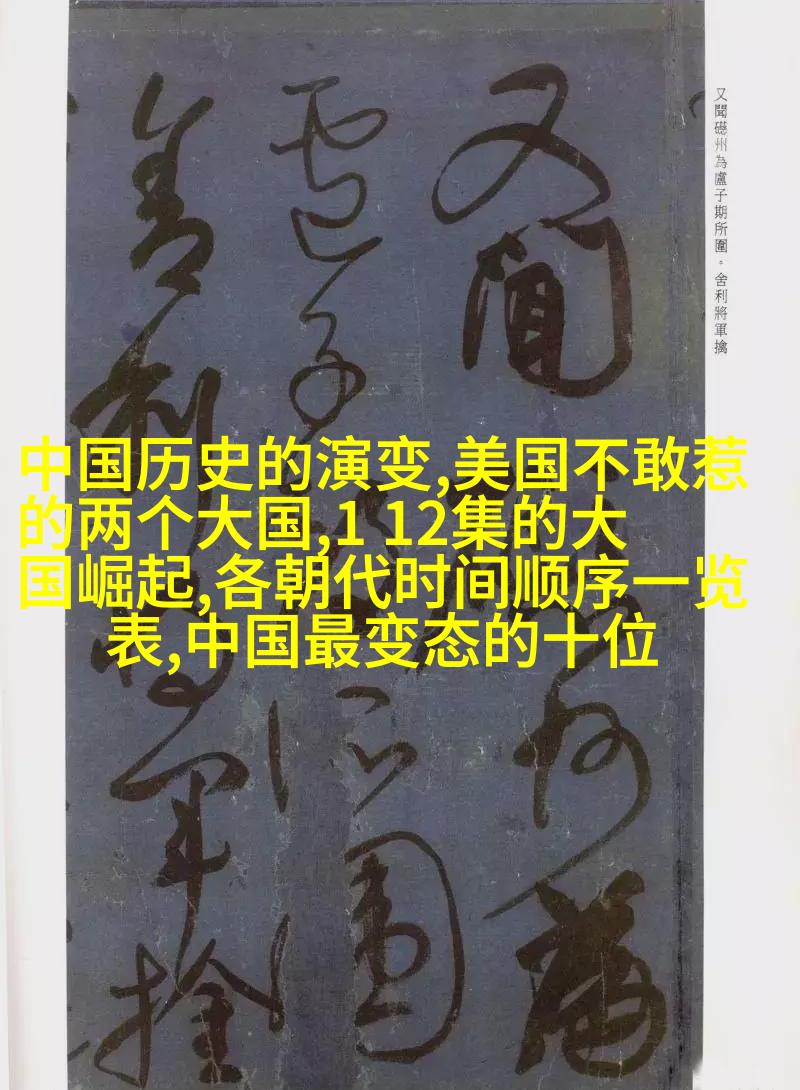 中国历史的演变,美国不敢惹
的两个大国,1 12集的大
国崛起,各朝代时间顺序一览
表,中国最变态的十位
又聞礠州為盧子期所圍。舍利將軍擒
又聞州為
盧子所圍
舍利將軍擒